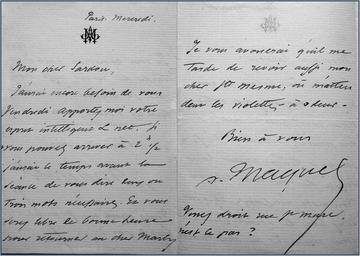 Paris. Mercredi.
Mon cher Sardou,
J'aurai encore besoin de vous
Vendredi apportez moi votre
esprit intelligent & net. Si
vous pouvez arriver à 2 h 1/2
j'aurai le temps avant la
séance de vous dire cinq ou
trois mots nécessaires. Et vous
serez libre de bonne heure
pour retourner au cher Marly
Je vous avouerai qu'il me
tarde de revoir aussi mon
cher
dont les violettes
Bien à vous
A. Maquet
Venez droit rue
n'est ce pas ?